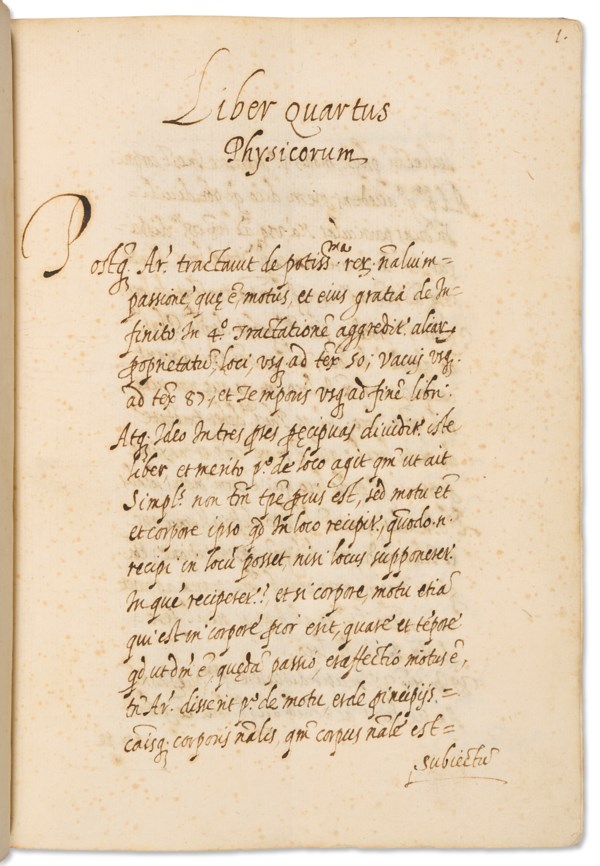 1.
Liber Quartus
Physicorum
Postq̃. Ar. tractavit de potiss.ma rer. nãlium=
passionẽ quę ẽ motus, et eius gratiã de In-
finito In 4.º Tractationẽ aggredit.
proprietatũ, loci, usq. ad tex. 50; vacuj usq.
ad tex. 87, et Temporis usq. ad finẽ libri.
Atq. Ideo In tres p̃ses p̃cipuas dividit. iste
liber, et merito p.º de loco agit qm̃ ut ait
Simpl.s non tm̃ tp̃e p̃ius est, sed motu et̃
et corpore ipso qd̃ In loco recipit. quõdo .n.
recipi in locũ posset, nisi locus supponeret.
In quẽ reciperet.? et si corpore, motu etiã
qui est in corpore p̃ior erit, quare et tẽpore
qd̃, ut dm̃ ẽ, quędã passio, et affectio motus ẽ,
tñ Ar. disserit p.º de motu, et de p̃incipijs=
cãisq. corporis nãlis, qm̃ corpus nãle est=
subiectũ